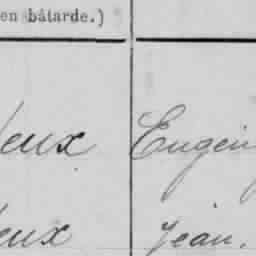 en bâtarde.)
eux Eugèn
eux Jean.